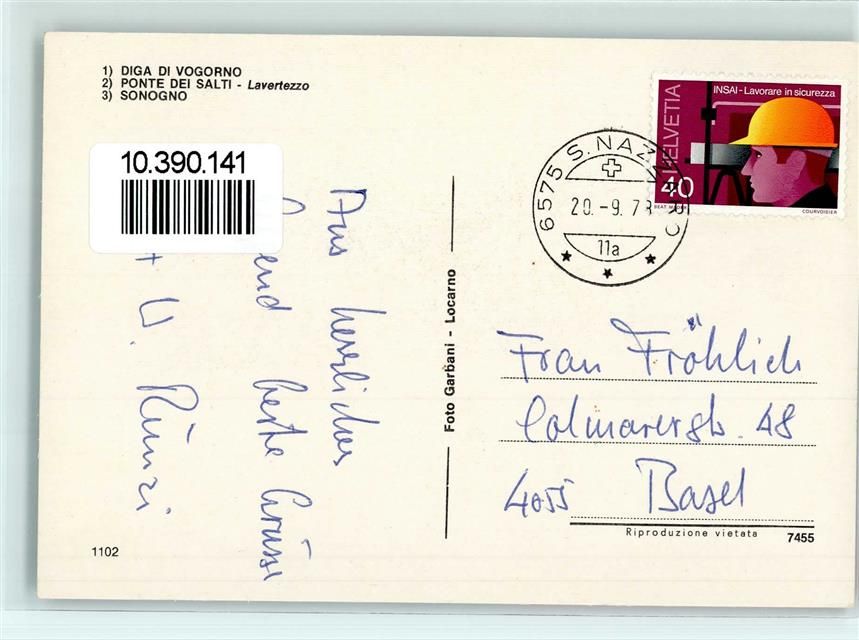 1) DIGA DI VOGORNO
2) PONTE DEI SALTI - Lavertezzo
3) SONOGNO
10.390.141
HELVETIA
INSAI - Lavorare in sicurezza
40
COURVOISIER
6575 S. NAZZARO
20.-9.78
11a
Aus herrlicher
end beste Grüsse
W. Künzi
Foto Garbani - Locarno
Frau Fröhlich
Colmarerstr. 48
4055 Basel
Riproduzione vietata 7455
1102